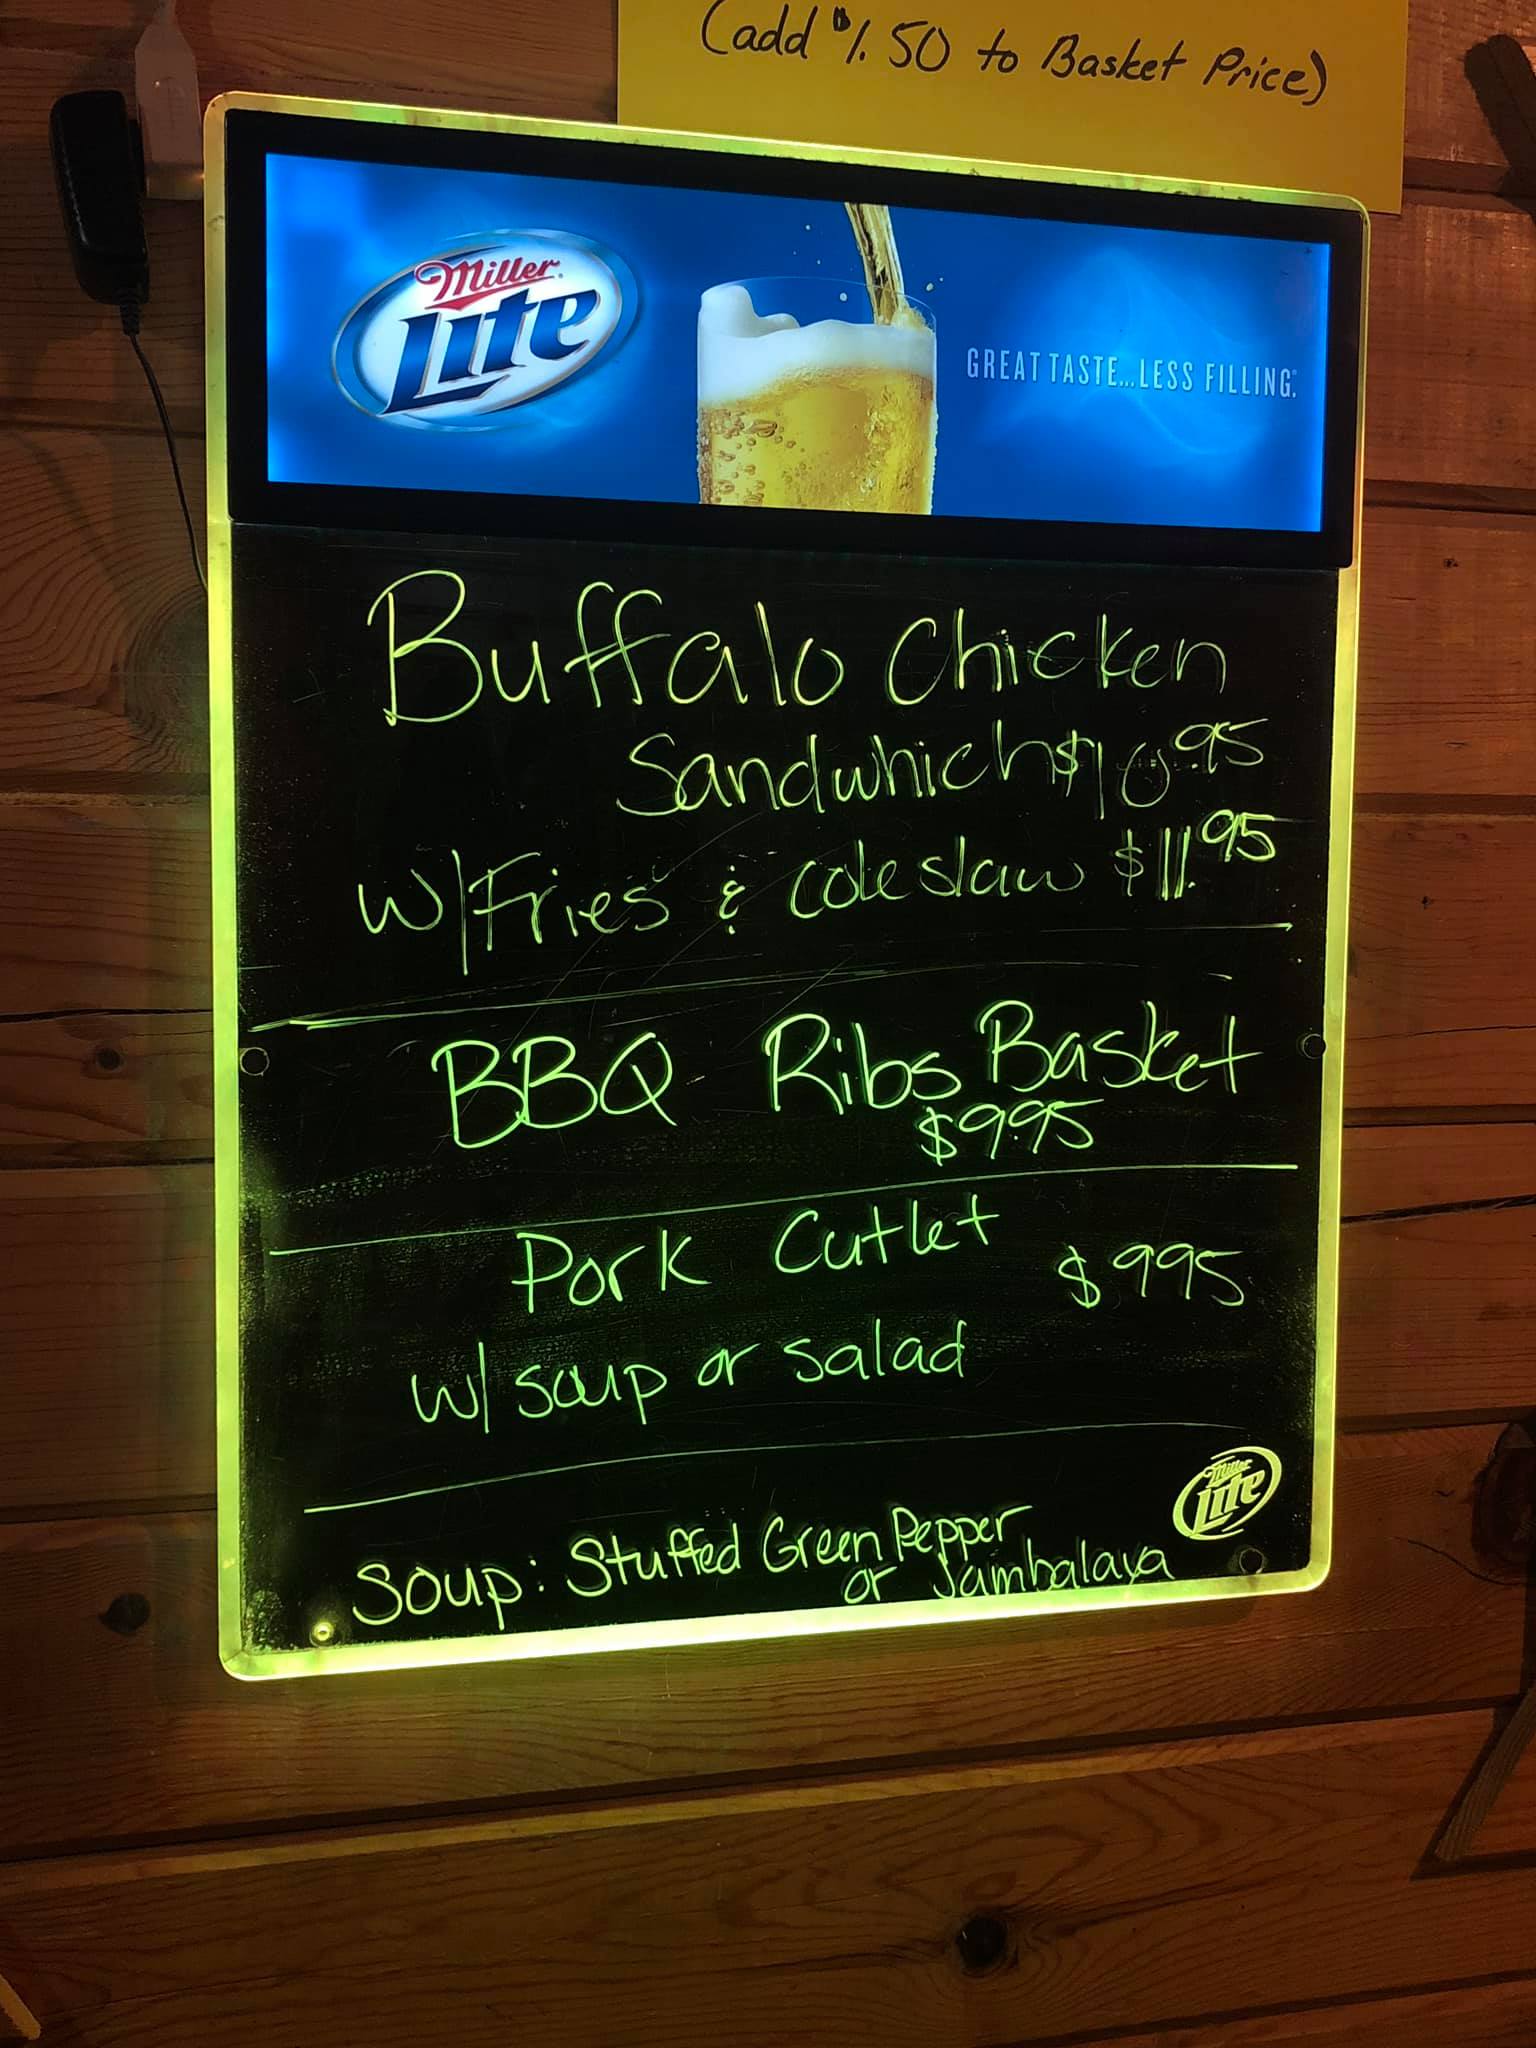 (add $1.50 to Basket Price)
Miller
Lite
GREAT TASTE...LESS FILLING.
Buffalo Chicken
Sandwhich $10.95
w/Fries & coleslaw $11.95
BBQ Ribs Basket
$9.95
Pork Cutlet $995
w/ soup or salad
Miller
Lite
Soup: Stuffed Green Pepper
or Jambalaya